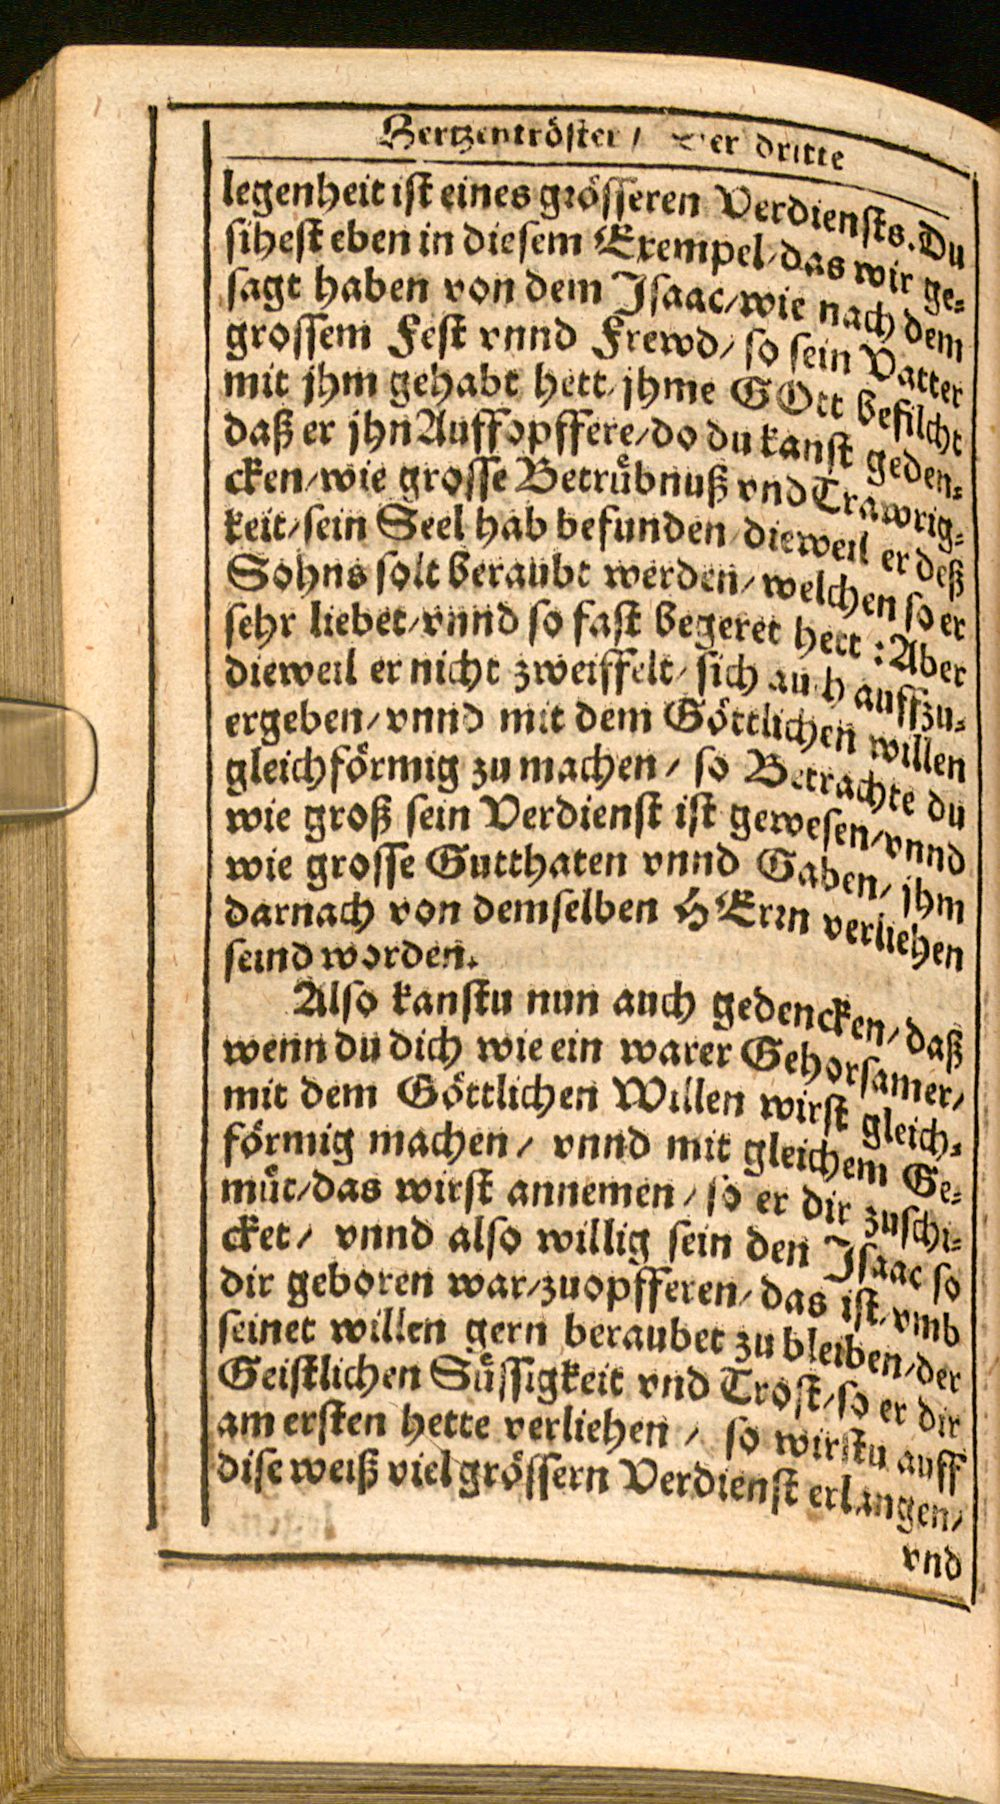 Hertzentröster / Der dritte
legenheit ist eines grösseren Verdiensts. Du
sihest eben in diesem Exempel / das wir ge-
sagt haben von dem Isaac / wie nach dem
grossem Fest vnnd Frewd / so sein Vatter
mit jhm gehabt hett / jhme GOtt befilcht
daß er jhn Auffopffere / do du kanst geden-
cken / wie grosse Betrübnuß vnd Trawrig-
keit / sein Seel hab befunden / dieweil er deß
Sohns solt beraubt werden / welchen so er
sehr liebet / vnnd so fast begeret hett : Aber
dieweil er nicht zweiffelt / sich auch auffzu-
ergeben / vnnd mit dem Göttlichen willen
gleichförmig zu machen / so Betrachte du
wie groß sein Verdienst ist gewesen / vnnd
wie grosse Gutthaten vnnd Gaben / jhm
darnach von demselben HErrn verliehen
seind worden.
Also kanstu nun auch gedencken / daß
wenn du dich wie ein warer Gehorsamer /
mit dem Göttlichen Willen wirst gleich-
förmig machen / vnnd mit gleichem Ge-
müt / das wirst annemen / so er dir zuschi-
cket / vnnd also willig sein den Isaac so
dir geboren war / zuopfferen / das ist / vmb
seinet willen gern beraubet zu bleiben / der
Geistlichen Süssigkeit vnd Trost / so er dir
am ersten hette verliehen / so wirstu auff
dise weiß viel grössern Verdienst erlangen /
vnd